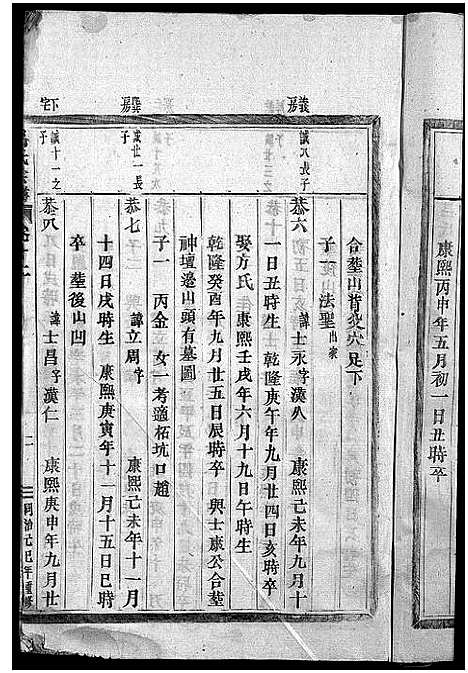 康熙丙申年五月初一日丑時卒
合塟山背灸穴兄下
子一 法聖 出家
義房
誠八長子
恭六 諱士永字漢八 康熙己未年九月十
一日丑時生 乾隆庚午年九月廿四日亥時卒
娶方氏 生康熙壬戌年六月十九日午時生
乾隆癸酉年九月廿五日辰時卒 與士康公合塟
神壇邊山頭有墓圖
子一 丙金 女一考適柘坑口趙
巽房
成廿一長子
恭七 諱立周字 康熙己未年十一月
十四日戌時生 康熙庚寅年十一月十五日巳時
卒 塟後山凹
下宅
誠十一之子
恭八 諱士昌字漢仁 康熙庚申年九月廿
二 同治元巳年重修